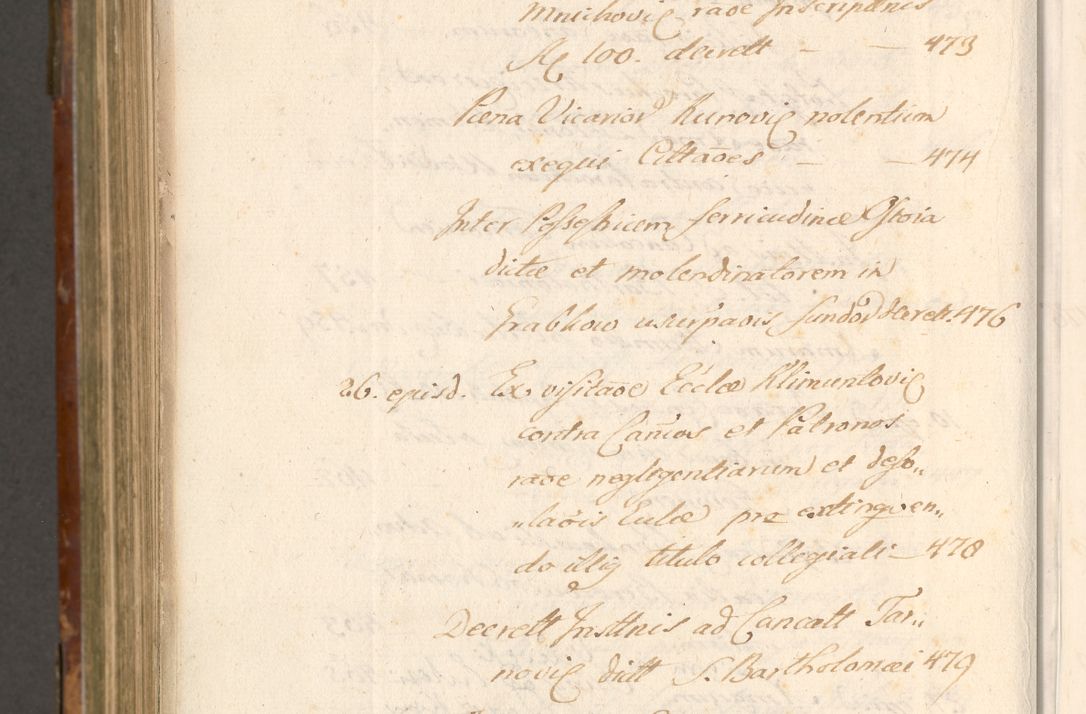 Mnichovic raõe Inscriptãnis
fl 100. decrett — — 473
Pœna Vicarior Kurovic nolentium
exequi Cittãoes — — 474
Inter Possessricem ferricudinæ Gloia
dictæ et molendinatorem in
Grabkow usurpãois fundor decrett. 476
26. episd. Ex visitãoe Eccłæ Klimuntovic
contra Canõcos et Patronos
raõe neglegentiarum et deso„
„laõis Eccłæ pro extingven„
do illiq titulo collegiali — 478
Decrett Insttnis ad Cancatt Tar„
novic ditt S. Bartholomæi 479